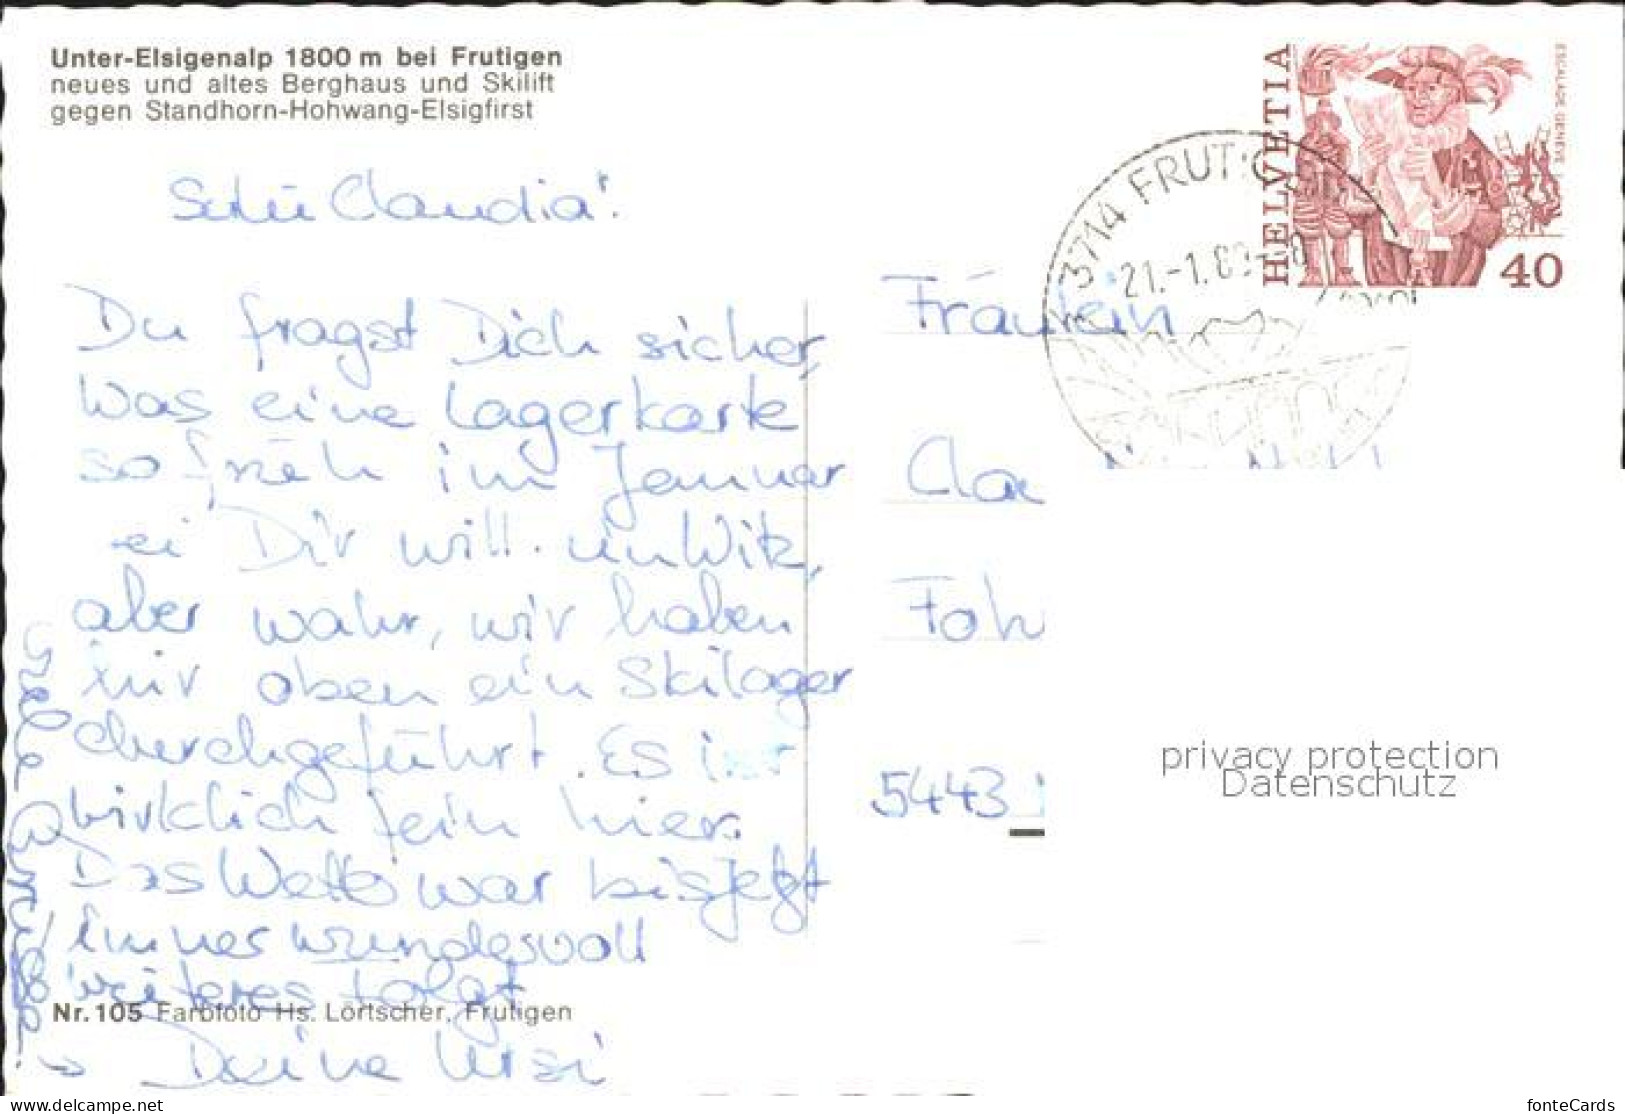 Unter-Elsigenalp 1800 m bei Frutigen
neues und altes Berghaus und Skilift
gegen Standhorn-Hohwang-Elsigfirst
HELVETIA
ESCALADE GENÈVE
40
3714 FRUTIG
21.-1.8
Claudia!
Du fragst Dich sicher,
Was eine Lagerkarte
so früh im Januar
bei Dir will. Kein Witz,
aber wahr, wir haben
hier oben ein Skilager
durchgeführt. Es ist
wirklich fein hier.
Das Wetter war bis jetzt
immer wundervoll
weiteres folgt
Deine Ursi
Fräulein
Cla
Foh
5443
Nr. 105 Farbfoto Hs. Lörtscher, Frutigen
privacy protection
Datenschutz
delcampe.net
fonteCards